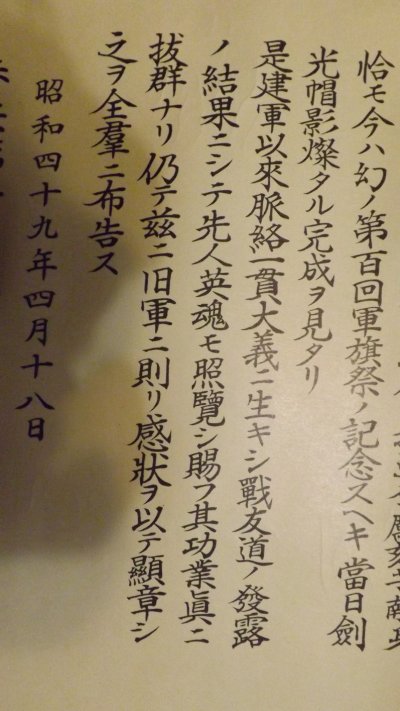 恰モ今ハ幻ノ第百回軍旗祭ノ記念スヘキ當日劍
光帽影燦タル完成ヲ見タリ
是建軍以來脈絡一貫大義ニ生キシ戰友道ノ發露
ノ結果ニシテ先人英魂モ照覽シ賜フ其功業眞ニ
拔群ナリ仍テ茲ニ旧軍ニ則リ感狀ヲ以テ顯章シ
之ヲ全羣ニ布告ス
昭和四十九年四月十八日